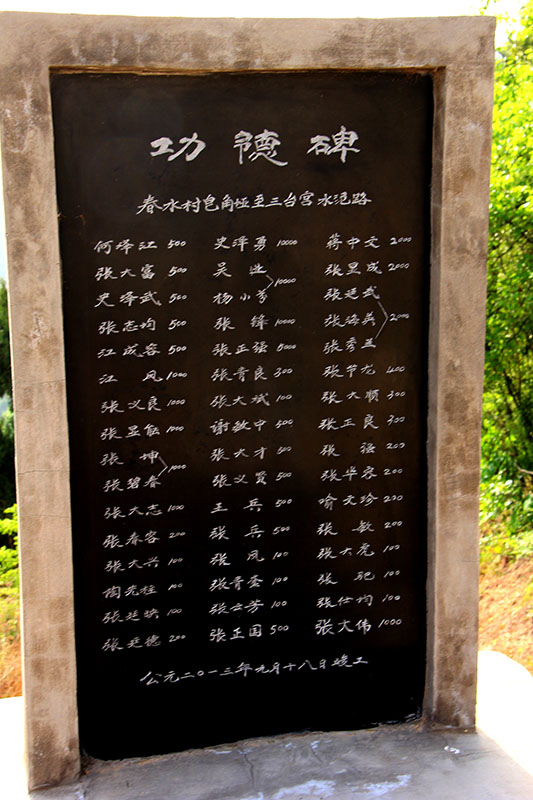 功德碑
春水村皂角垭至三台宫水沱路
何泽江 500 史泽勇 10000 蒋中文 2000
张大富 500 吴进 张显成 2000
史泽武 500 杨小芳 10000 张廷武
张志均 500 张锋 10000 张海英 2000
江成容 500 张正强 5000 张秀兰
江风 1000 张青良 300 张节龙 400
张义良 1000 张大斌 100 张大顺 300
张显伍 1000 谢敏中 500 张正良 300
张坤 张大才 500 张强 200
张碧春 1000 张义贤 500 张华容 200
张大志 1000 王兵 500 喻文珍 200
张春容 200 张兵 500 张敏 200
张大兴 100 张凤 100 张大虎 100
陶光柱 100 张青奎 100 张 100
张廷映 100 张云芳 100 张仕均 100
张廷德 200 张正国 500 张大伟 1000
公元二〇一三年元月十八日竣工